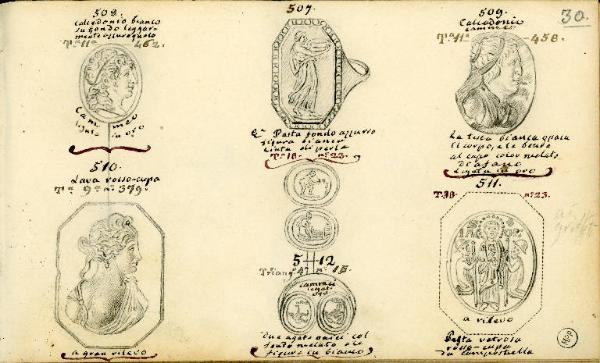 508.
Calcedonio bianco
su fondo leggier-
mente azzurognolo
Tª 11ª 462.
Cammeo
legato in oro
507.
Gr. Pasta fondo azzurro
figura bianca
cinta di perle
Tª 18. nº 23.
509.
Calcedonio
cammeo
Tª 11ª 458.
La testa bianca opaca
il corpo, e le bende
al capo color melato
diafano
Legata in oro
30.
510.
Lava rosso-cupa
Tª 9ª nº 379.
a gran rilievo
512
Triang. 4º nº 15.
cammei
legati
Due agate onici col
fondo melato e le
figure in bianco
511.
Tª 18. nº 23.
a rilievo
Pasta vetrosa
rosso-cupa
da Campostella